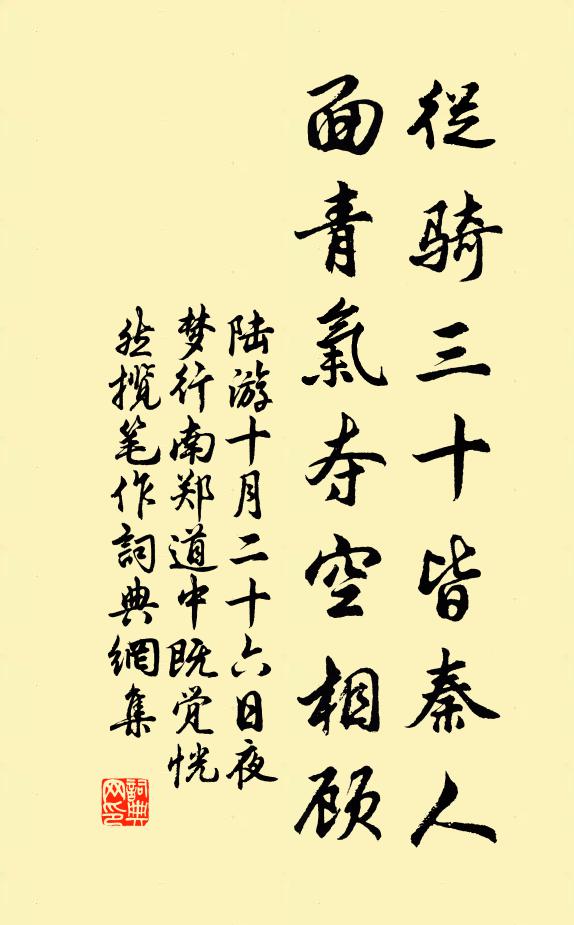 從骑三十皆秦人
面青氣夺空相顾
陆游十月二十六日夜
梦行南郑道中既觉恍
然揽笔作詞典網集
詞典
网印